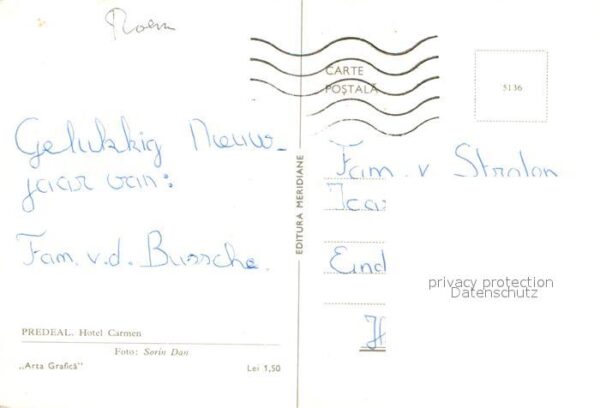 Roem
CARTE
POȘTALĂ
5136
Gelukkig Nieuw-
jaar van:
Fam. v.d. Bussche.
EDITURA MERIDIANE
Fam. v Straten
Eind
privacy protection
Datenschutz
PREDEAL. Hotel Carmen
Foto: Sorin Dan
„Arta Grafică”
Lei 1,50